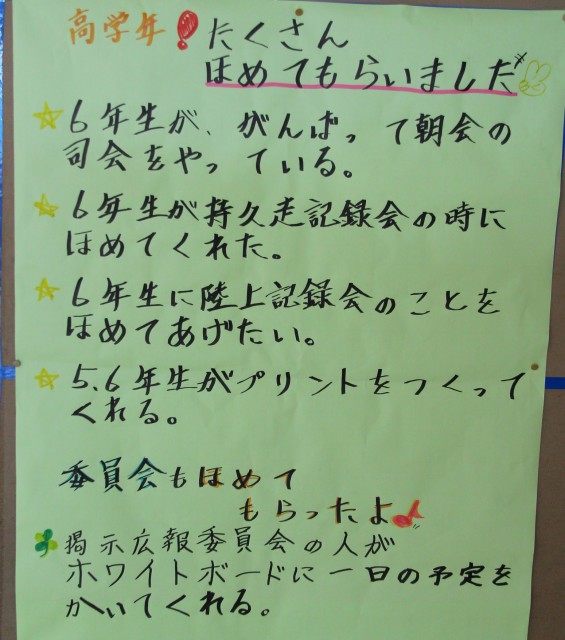 高学年！たくさん
ほめてもらいました
☆6年生が、がんばって朝会の
司会をやっている。
☆6年生が持久走記録会の時に
ほめてくれた。
☆6年生に陸上記録会のことを
ほめてあげたい。
☆5、6年生がプリントをつくって
くれる。
委員会もほめて
もらったよ♪
掲示広報委員会の人が
ホワイトボードに一日の予定を
かいてくれる。